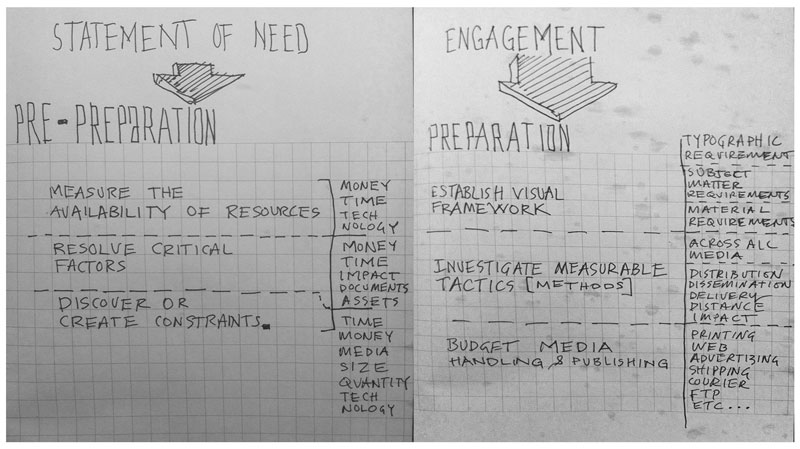 STATEMENT OF NEED
PRE-PREPARATION
MEASURE THE
AVAILABILITY OF RESOURCES
MONEY
TIME
TECH
NOLOGY
RESOLVE CRITICAL
FACTORS
MONEY
TIME
IMPACT
DOCUMENTS
ASSETS
DISCOVER OR
CREATE CONSTRAINTS.
TIME
MONEY
MEDIA
SIZE
QUANTITY
TECH
NOLOGY
ENGAGEMENT
PREPARATION
ESTABLISH VISUAL
FRAMEWORK
TYPOGRAPHIC
REQUIREMENT
SUBJECT
MATTER
REQUIREMENTS
MATERIAL
REQUIREMENTS
INVESTIGATE MEASURABLE
TACTICS [METHODS]
ACROSS ALL
MEDIA
DISTRIBUTION
DISSEMINATION
DELIVERY
DISTANCE
IMPACT
BUDGET MEDIA
HANDLING & PUBLISHING
PRINTING
WEB
ADVERTIZING
SHIPPING
COURIER
FTP
ETC...